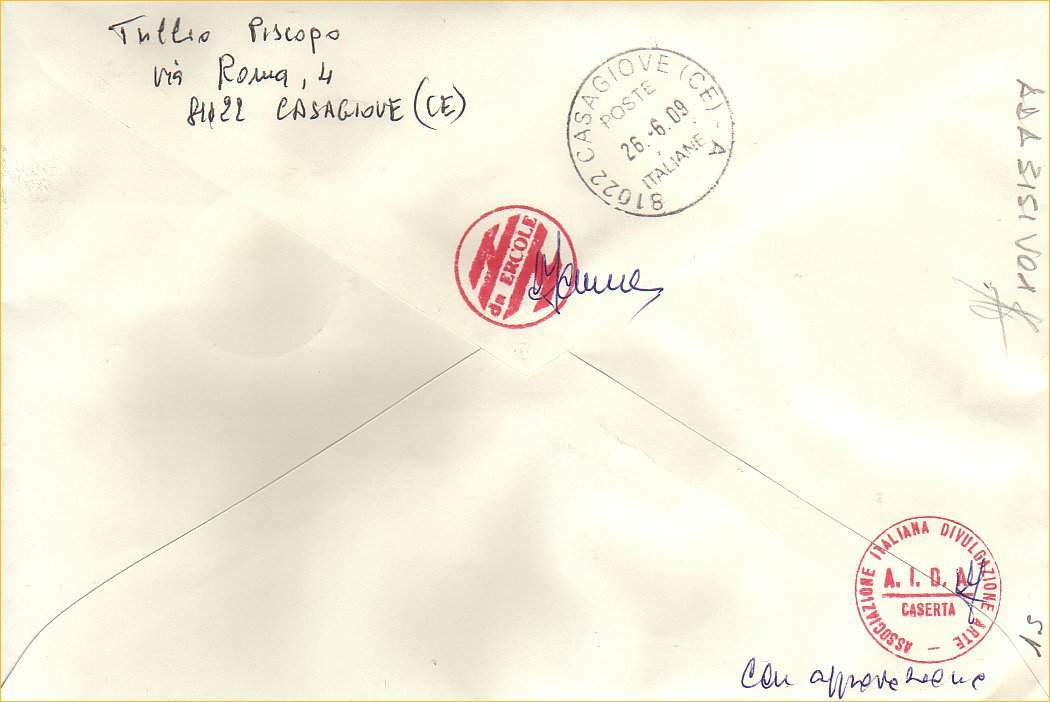 Tullio Piscopo
via Roma, 4
81022 CASAGIOVE (CE)
81022 CASAGIOVE (CE) - A
POSTE
26.-6.09
ITALIANE
da ERCOLE
ASSOCIAZIONE ITALIANA DIVULGAZIONE ARTE
A. I. D. A.
CASERTA
Con approvazione